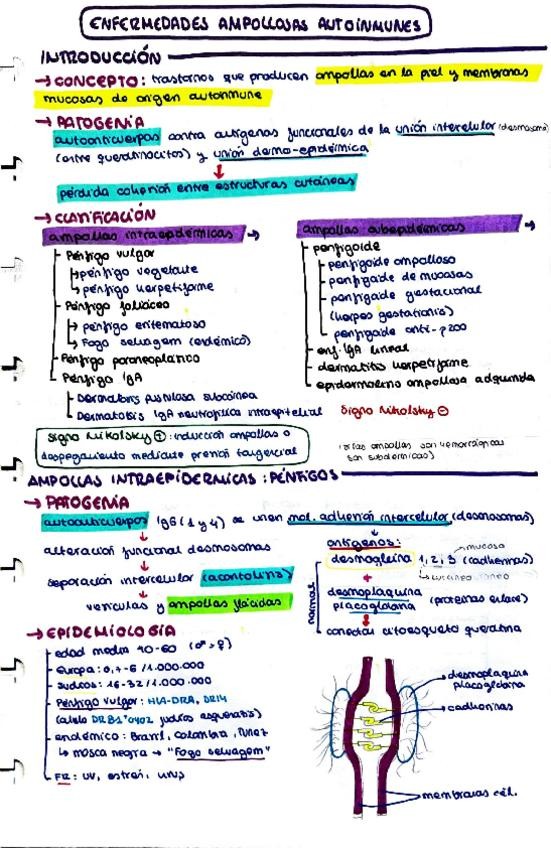 ENFERMEDADES AMPOLLOSAS AUTOINMUNES
INTRODUCCIÓN
→ CONCEPTO: trastornos que producen ampollas en la piel y membranas
mucosas de origen autoinmune
→ PATOGENIA
autoanticuerpos contra antígenos funcionales de la unión intercelular (desmosoma)
(entre queratinocitos) y unión dermo-epidérmica
↓
pérdida cohesión entre estructuras cutáneas
→ CLASIFICACIÓN
ampollas intraepidérmicas →
Pénfigo vulgar
↳ pénfigo vegetante
↳ pénfigo herpetiforme
Pénfigo foliáceo
↳ pénfigo eritematoso
↳ Fogo selvagem (endémico)
Pénfigo paraneoplásico
Pénfigo IgA
Dermatosis pustulosa subcórnea
Dermatosis IgA neutrofílica intraepitelial
ampollas subepidérmicas →
penfigoide
penfigoide ampolloso
penfigoide de mucosas
penfigoide gestacional
(herpes gestationis)
penfigoide anti-p200
enf. IgA lineal
dermatitis herpetiforme
epidermolisis ampollosa adquirida
Signo Nikolsky ⊖
signo Nikolsky ⊕: inducción ampollas o
despegamiento mediante presión tangencial
(si las ampollas son hemorrágicas
son subdérmicas)
AMPOLLAS INTRAEPIDÉRMICAS: PÉNFIGOS
→ PATOGENIA
autoanticuerpos IgG (1 y 4) se unen mol. adhesión intercelular (desmosomas)
↓
alteración funcional desmosomas
↓
separación intercelular (acantolisis)
↓
vesículas y ampollas flácidas
antígenos:
desmogleína 1, 2, 3 (cadherinas)
mucosa
+
desmoplaquina
placoglobina (proteínas enlace)
↓
conectar citoesqueleto queratina
normal
→ EPIDEMIOLOGÍA
edad media 40-60 (♂ > ♀)
Europa: 0,7-6 / 1.000.000
Judíos: 16-32 / 1.000.000
Pénfigo vulgar: HLA-DR4, DR14
(alelo DRB1*0402 judíos asquenazis)
endémico: Brasil, Colombia, Túnez
↳ mosca negra → "Fogo selvagem"
FR: UV, estrés, virus
desmoplaquina
placoglobina
cadherinas
membranas cél.